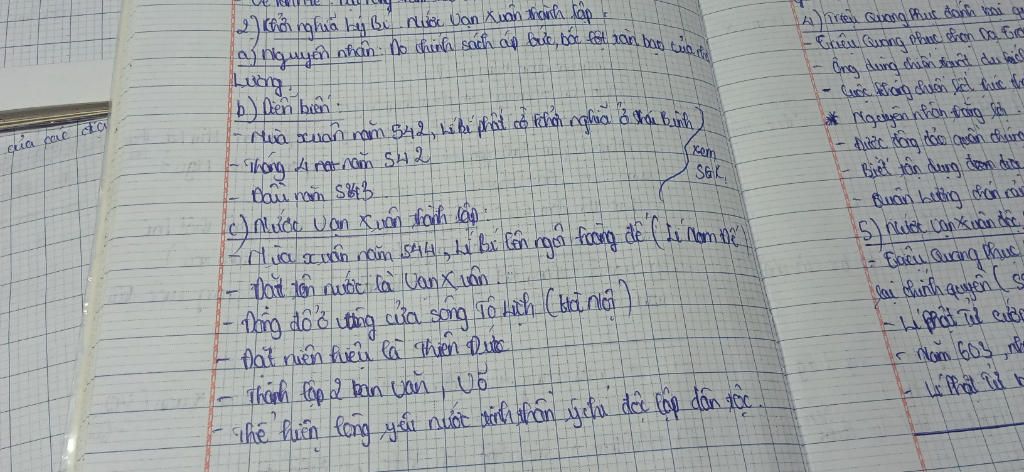 2) Khởi nghĩa Lý Bí. Nước Vạn Xuân thành lập.
a) Nguyên nhân: Do chính sách áp bức, bóc lột, tàn bạo của nhà
Lương.
b) Diễn biến:
- Mùa xuân năm 542, Lí Bí phất cờ khởi nghĩa ở Thái Bình
- Tháng 4 năm 542
- Đầu năm 543
xem
SGK
c) Nước Vạn Xuân thành lập.
- Mùa xuân năm 544, Lí Bí lên ngôi hoàng đế (Lí Nam Đế
- Đặt tên nước là Vạn Xuân.
- Đóng đô ở vùng cửa sông Tô Lịch (Hà Nội)
- Đặt niên hiệu là Thiên Đức
- Thành lập 2 ban văn, võ
- Thể hiện lòng yêu nước tinh thần ý chí độc lập dân tộc.
4) Triệu Quang Phục đánh bại
- Triệu Quang Phục chọn Dạ
- Ông dùng chiến thuật du
- Cuộc kháng chiến kết thúc
* Nguyên nhân thắng lợi
- Được đông đảo quần chúng
- Biết tận dụng
- Quân Lương chán
5) Nước Vạn Xuân độc
- Triệu Quang Phục
lại chính quyền
- Lí Phật Tử cướp
- Năm 603,
- Lí Phật Tử
của các